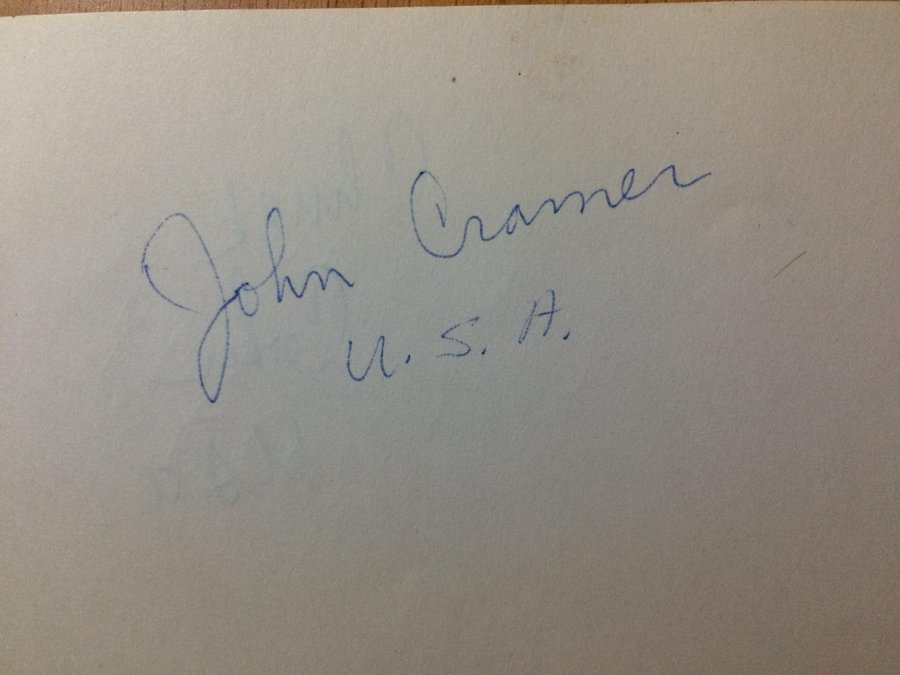 John Cramer
U. S. A.